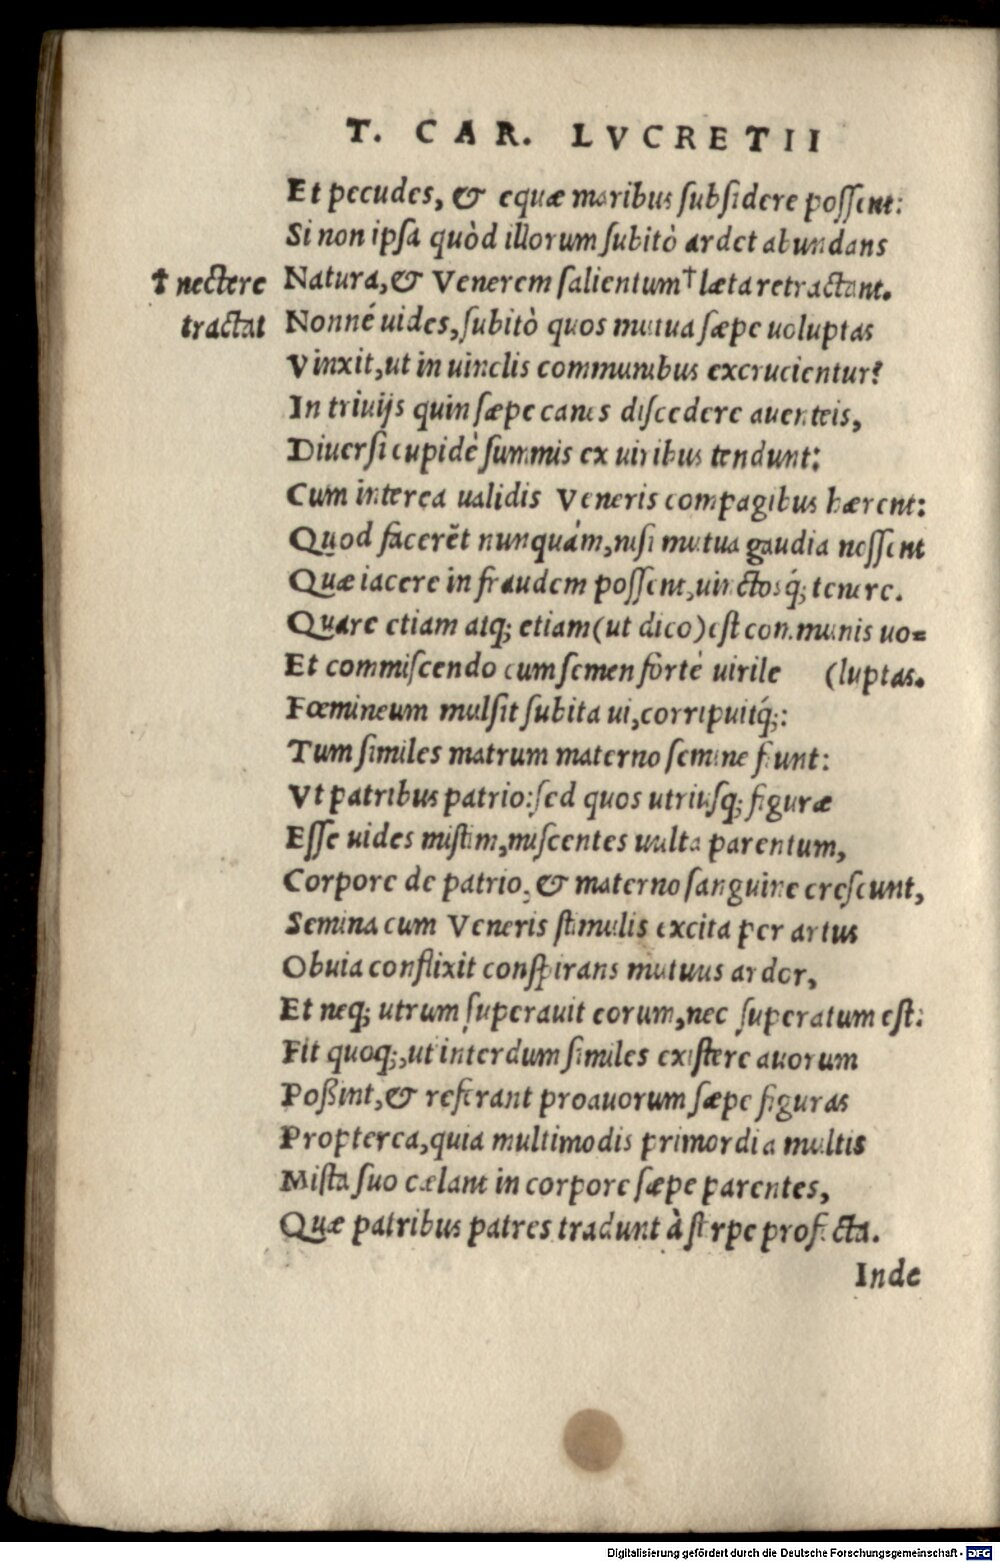 T. CAR. LVCRETII
Et pecudes, & equæ maribus ſubſidere poſſent:
Si non ipſa quòd illorum ſubitò ardet abundans
† nectere Natura,& Venerem ſalientum† læta retractant.
tractat Nonné uides,ſubitò quos mutua ſæpe uoluptas
Vinxit,ut in uinclis communibus excrucientur?
In triuijs quin ſæpe canes diſcedere auenteis,
Diuerſi cupidè ſummis ex uiribus tendunt:
Cum interea ualidis Veneris compagibus hærent:
Quod facerẽt nunquàm,niſi mutua gaudia noſſent
Quæ iacere in fraudem poſſent,uinctosq́; tenere.
Quare etiam atq; etiam(ut dico)eſt communis uo=
Et commiſcendo cum ſemen fortè uirile (luptas.
Fœmineum mulſit ſubita ui,corripuitq́;:
Tum ſimiles matrum materno ſemine fiunt:
Vt patribus patrio:ſed quos utriuſq; figuræ
Eſſe uides miſtim,miſcentes uulta parentum,
Corpore de patrio, & materno ſanguine creſcunt,
Semina cum Veneris ſtimulis excita per artus
Obuia conflixit conſpirans mutuus ardor,
Et neq; utrum ſuperauit eorum,nec ſuperatum eſt:
Fit quoq;,ut interdum ſimiles exiſtere auorum
Poßint,& referant proauorum ſæpe figuras
Propterea,quia multimodis primordia multis
Miſta ſuo cælant in corpore ſæpe parentes,
Quæ patribus patres tradunt à ſtirpe profecta.
Inde
Digitalisierung gefördert durch die Deutsche Forschungsgemeinschaft - DFG